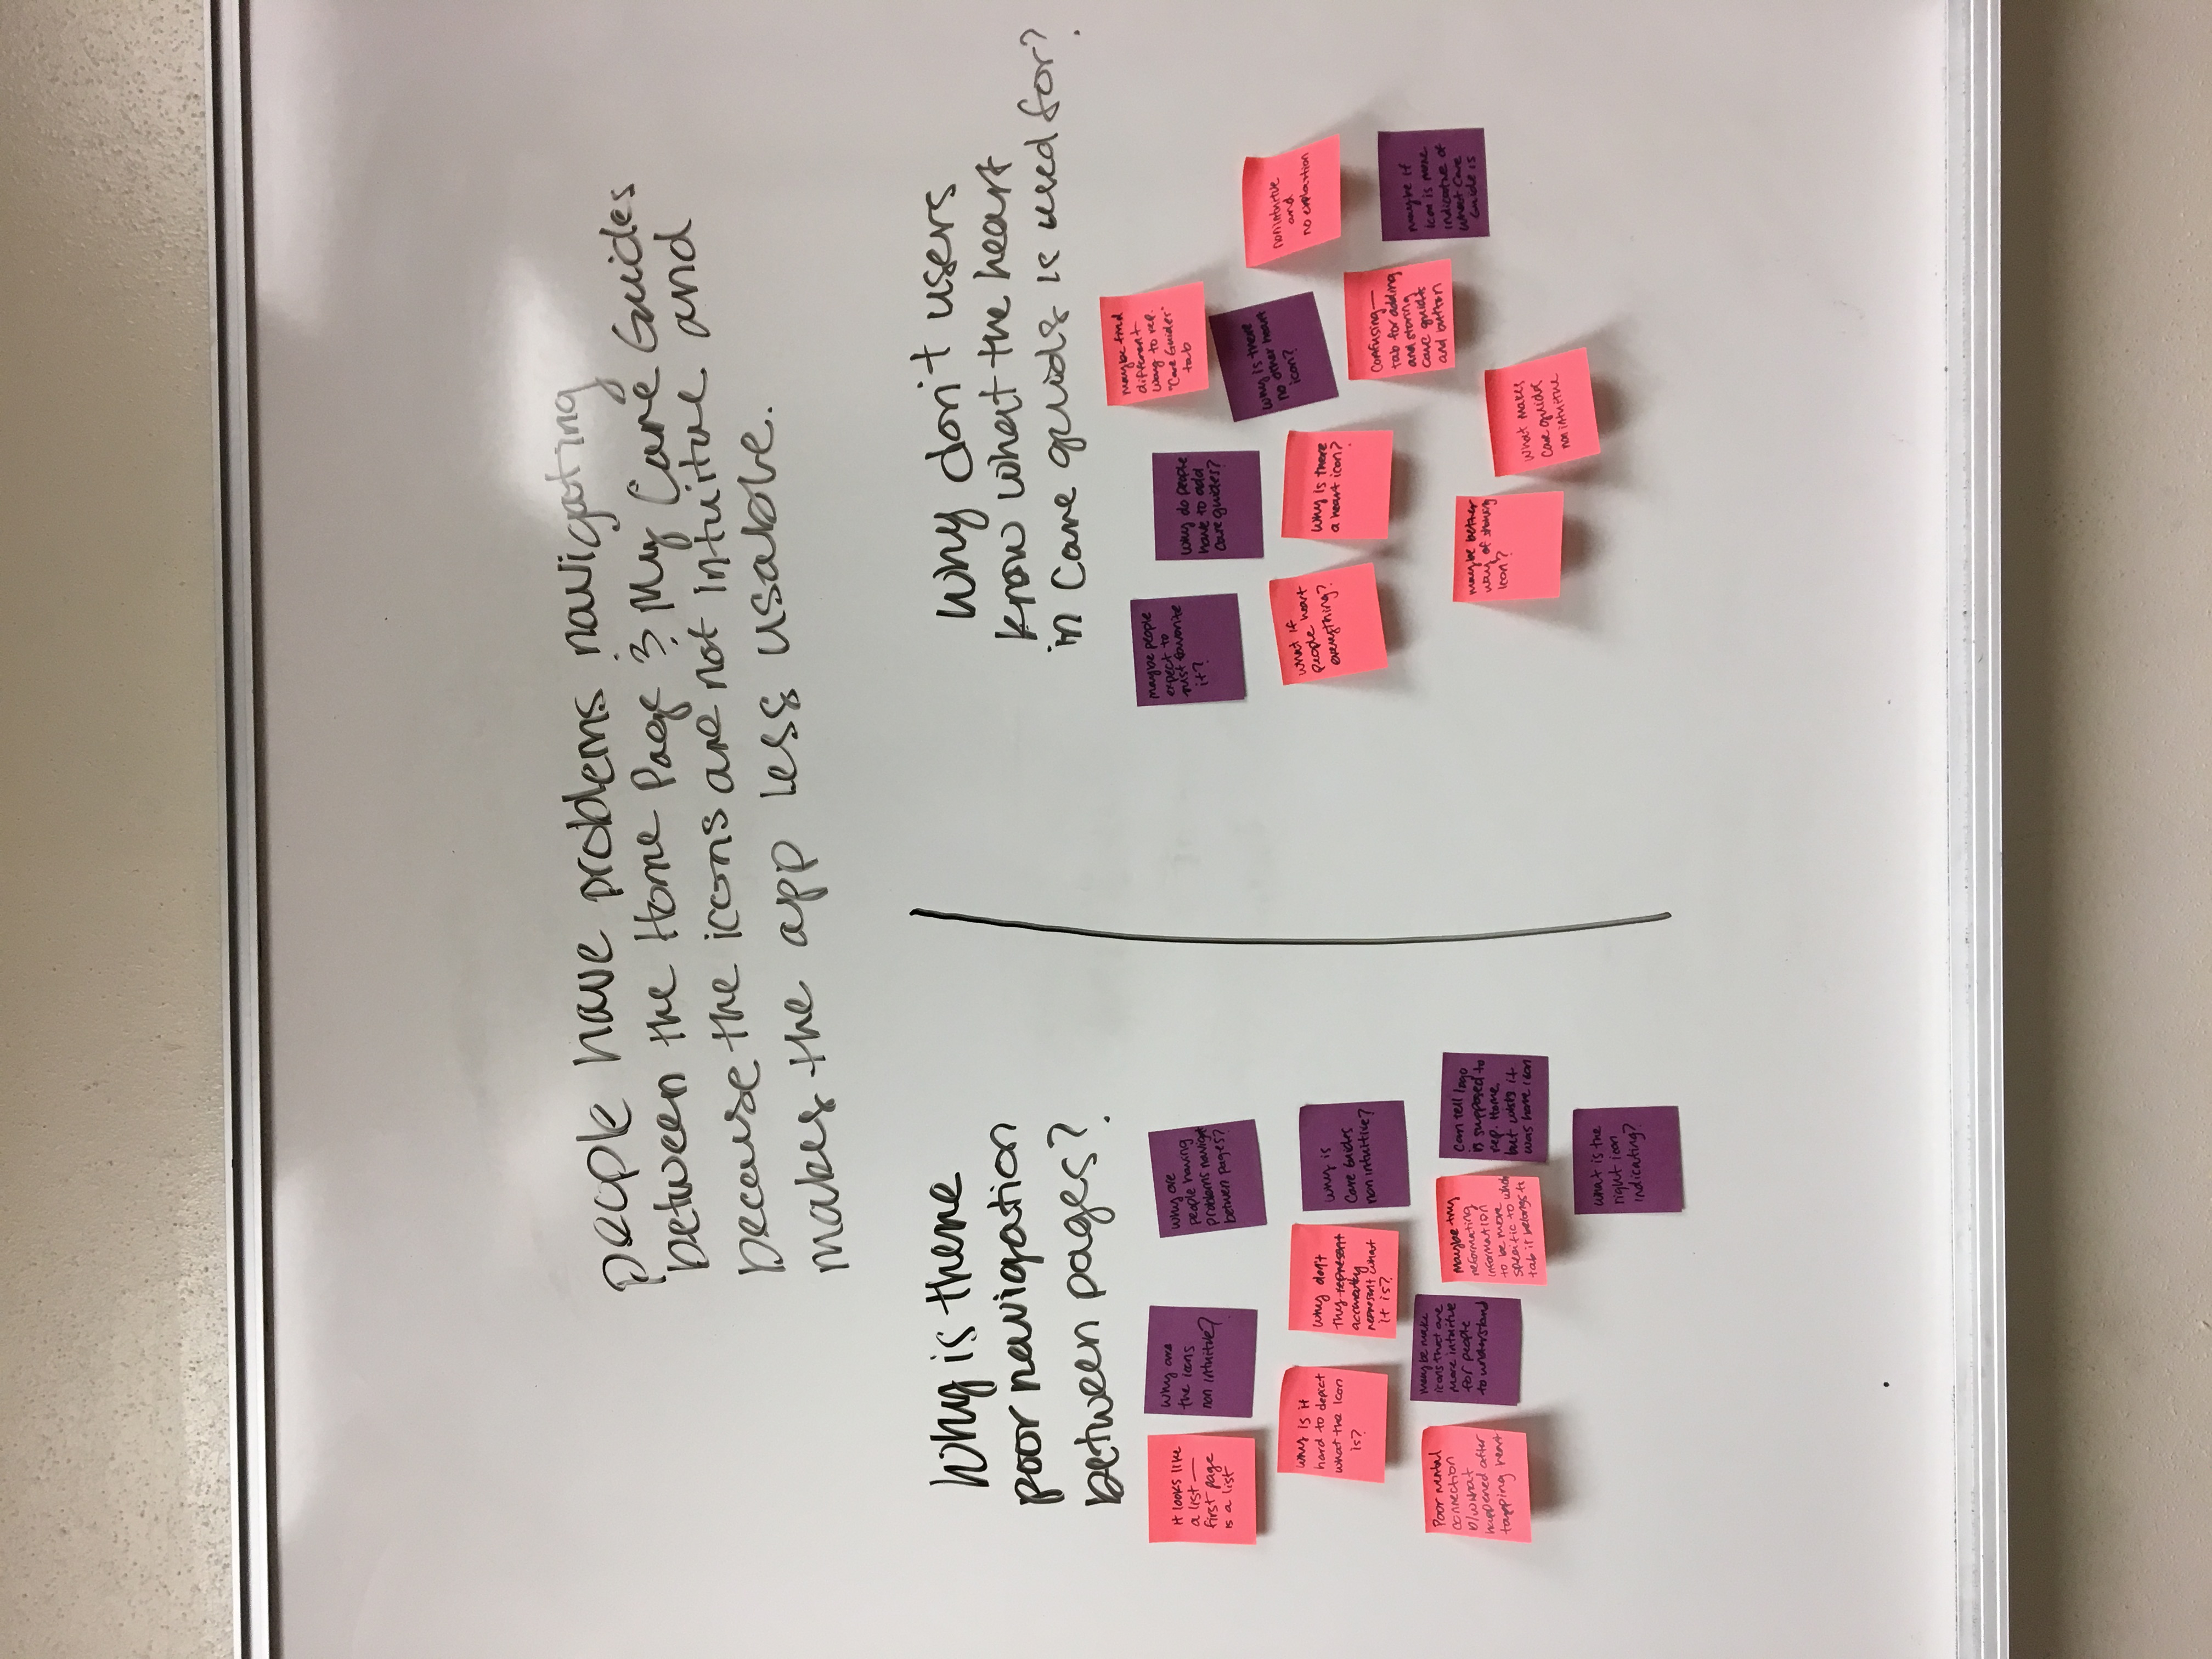 people have problems navigating
between the Home Page & My Care Guides
because the icons are not intuitive and
makes the app less usable.
Why is there
poor navigation
between pages?
It looks like
a list —
first page
is a list
Why are
the icons
non intuitive?
Why are
people having
problems navigat
between pages?
Why is it
hard to depict
what the icon
is?
Why don't
they represent
accurately
represent what
it is?
Why is
Care Guides
non intuitive?
Poor mental
connection
b/w what
happened after
tapping heart
Maybe make
icons that are
more intuitive
for people
to understand
Maybe try
reformating
information
to be more
specific to which
tab it belongs to
Can tell logo
is supposed to
rep. Home
but wishes it
was home icon
What is the
right icon
indicating?
Why don't users
know what the heart
in Care guids is used for?
maybe people
expect to
just favorite
it?
Why do people
have to add
Care guides?
maybe find
different
way to rep.
"Care Guides"
tab
Why is there
no other heart
icon?
nonintuitive
and
no explantion
What if
people heart
everything?
Why is there
a heart icon?
Confusing —
tab for adding
and storing
care guides
and button
maybe if
icon is more
indicative of
what Care
Guide is
maybe better
way of showing
icon?
What makes
Care guides
non intuitive